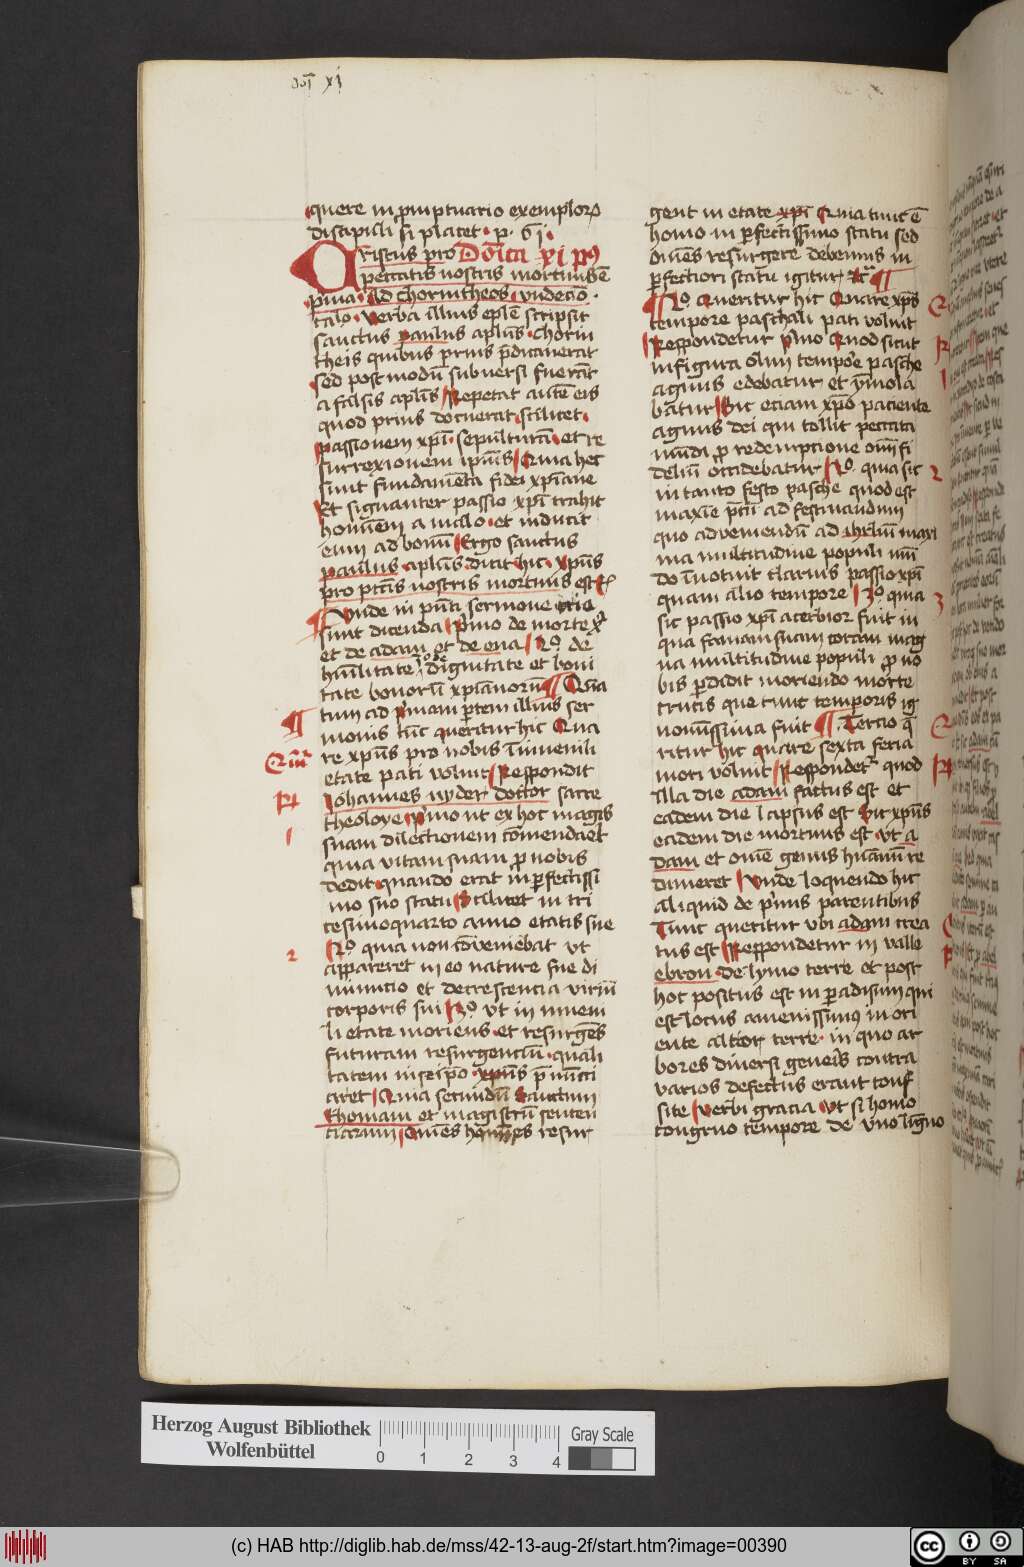 dom xi
quere in p̄mptuario exemplorꝝ
discipuli si placet · p · 61 ·
Cristus pro Domīca xi pꝰ
peccatis nostris mortuus ē
p̄ma · Ad chorintheos · vndecīo ·
talo · Verba illius eple scripsit
sanctus paulus aplūs · chorin
theis quibus prius p̄dicauerat
sed post modū subuersi fuerāt
a falsis aplīs Repetat autē eis
quod prius docuerat · scilicet ·
passionem xpī · sepulturā · et re
surrexionem ipīus Quia hec
sunt fundamēta fidei xpīane
Et signanter passio xpī trahit
hominem a malo · et inducit
eum ad bonū Ergo sanctus
paulus aplūs dicit hic · xpūs
pro pctīs nostris mortuus est
Vnde in p̄nti sermone tria
sunt dicenda p̄mo de morte xp̄i
et de adam et de eua 2º de
humilitate 3º de dignitate et boni
tate bonorū xpīanorū Quā
tum ad p̄mam p̄tem illius ser
monis tūc queritur hic Qua
re xpūs pro nobis ī iuuenili
etate pati voluit Respondit
Johannes nyder doctor sacre
theoloye p̄mo ut ex hoc magis
suam dilectionem cōmendaēt
quia vitam suam p̄ nobis
dedit quando erat in p̄fectissi
mo suo statu Scilicet in tri
cesimoquarto anno etatis sue
2
2º quia non cōueniebat vt
appareret in eo nature sue di
minutio et decrescencia viriū
corporis sui 3º vt in iuueni
li etate moriens et resurgēs
futuram resurgenciū · quali
tatem in seipō · xpūs p̄ nūcti
aret Quia secundū Sanctum
Thomam et magistrū senten
ciarum Omēs homines resur
gent in etate xpī Quia tunc ē
homo in p̄fectissimo statu sed
omēs resurgere debemus in
p̄fectiori statu igitur etc̄
2º Queritur hic Quare xpūs
tempore paschali pati voluit
Respondetur p̄mo Quod sicut
in figura olim tempore pasche
agnus edebatur et ymola
bātur Sic eciam xpō paciente
agnus dei qui tollit peccata
mūdi p̄ redempcione omī fi
deliū occidebatur 2º quia sic
in tanto festo pasche quod est
maxīe p̄ctū ad festinandum
quo adveniendū ad ihrlm̄ maxi
ma multitudine populi mū
do īnotuit clarius passio xpī
quam alio tempore 3º quia
sic passio xpī acerbior fuit in
qua famam suam coram mag
na multitudine populi p̄ no
bis p̄didit moriendo morte
crucis que tunc temporis ig
nominissima fuit Tercio que
ritur hic quare sexta feria
mori voluit Respondetur quod
illa die adam factus est et
eadem die lapsus est Sic xpūs
eadem die mortuus est vt a
dam et omē genus humanū re
dimeret Vnde loquendo hic
aliquid de p̄mis parentibus
Tunc queritur vbi adam crea
tus est Respondetur in valle
ebron · de lymo terre et post
hoc positus est in paradisum qui
est locus amenissimus in ori
ente altior terre · in quo ar
bores diuersi geneīs contra
varios defectus erant conf
site Verbi gracia Vt si homo
congruo tempore de vno ligno
Herzog August Bibliothek
Wolfenbüttel
0 1 2 3 4
Gray Scale
(c) HAB http://diglib.hab.de/mss/42-13-aug-2f/start.htm?image=00390
cc BY SA